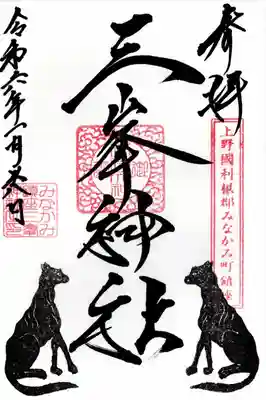 奉拝
上野國利根郡みなかみ町鎮座
三峯神社
令和六年一月吉日
みなかみ